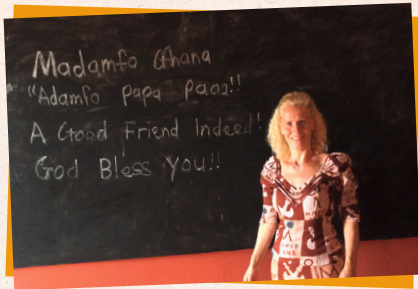 Madamfo Ghana
"Adamfo papa paaa!!
A Good Friend Indeed!
God Bless You!!